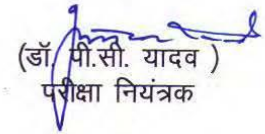 (डॉ. पी.सी. यादव )
परीक्षा नियंत्रक